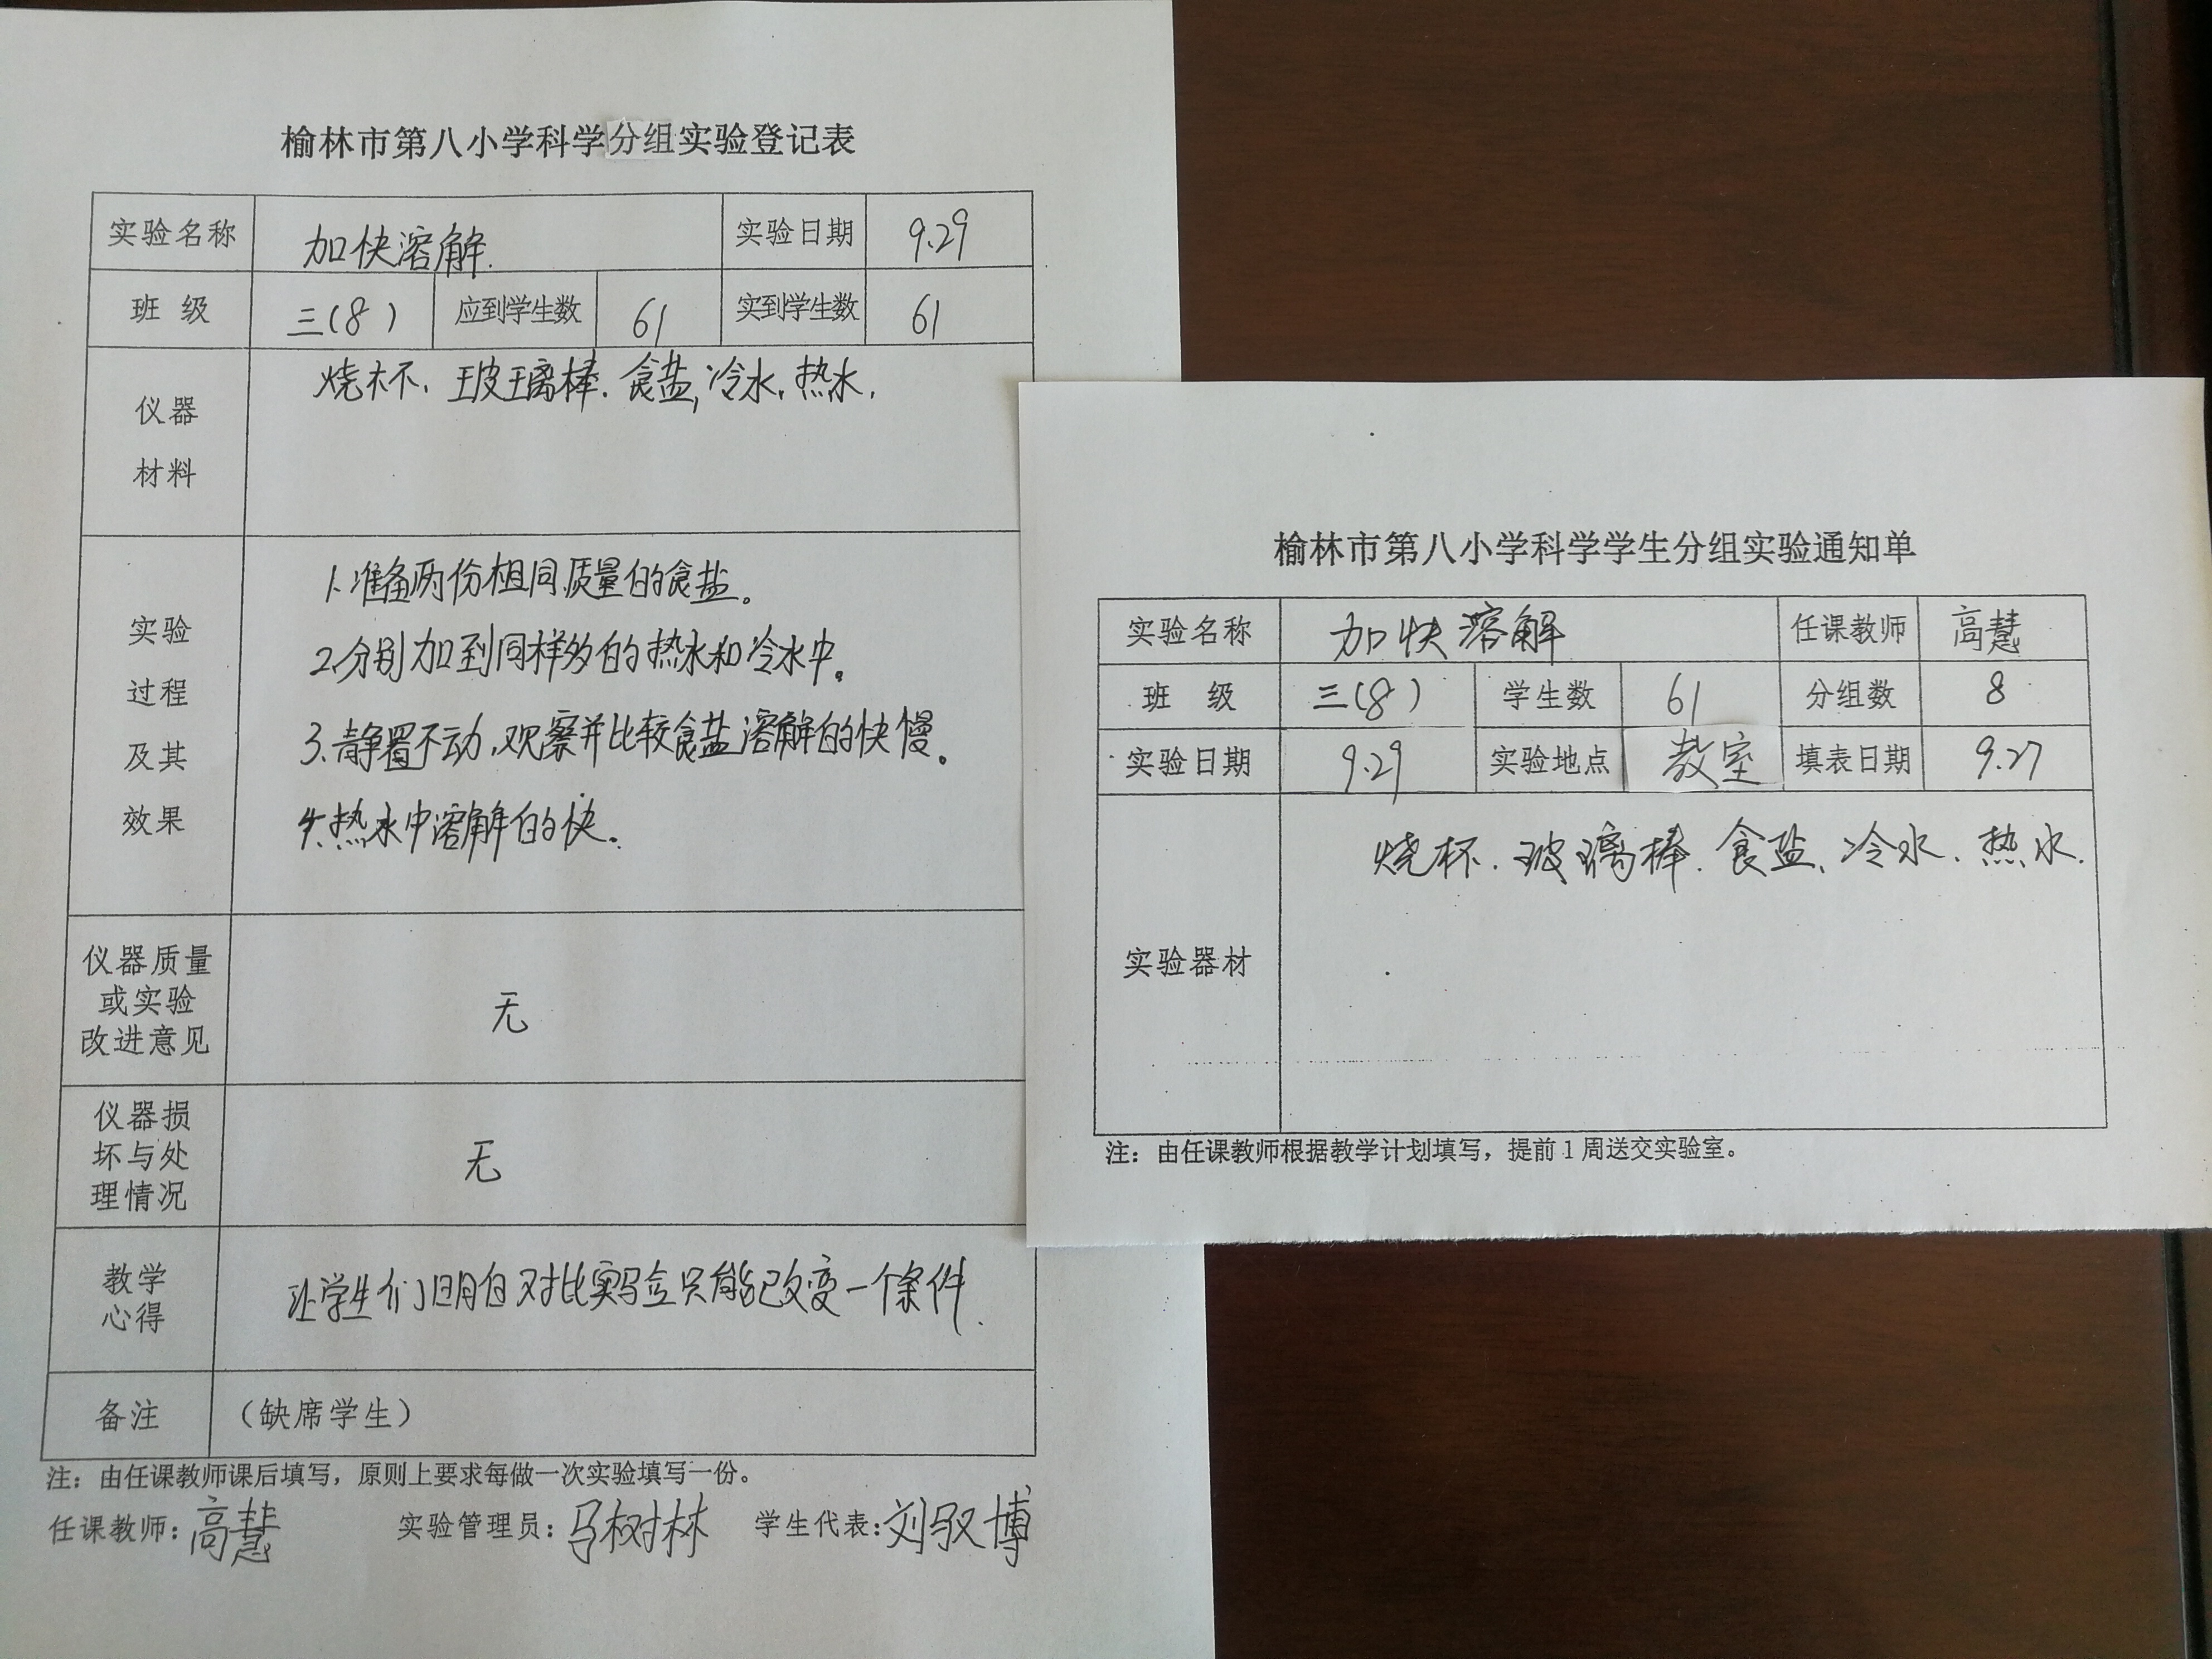 榆林市第八小学科学分组实验登记表
实验名称 加快溶解. 实验日期 9.29
班 级 三(8) 应到学生数 61 实到学生数 61
仪器
材料
烧杯、玻璃棒、食盐,冷水、热水.
实验
过程
及其
效果
1.准备两份相同质量的食盐。
2.分别加到同样多的热水和冷水中。
3.静置不动,观察并比较食盐溶解的快慢。
4.热水中溶解的快。
仪器质量
或实验
改进意见
无
仪器损
坏与处
理情况
无
教学
心得
让学生们明白对比实验只能改变一个条件.
备注 (缺席学生)
注:由任课教师课后填写,原则上要求每做一次实验填写一份。
任课教师:高慧 实验管理员:马树林 学生代表:刘驭博
榆林市第八小学科学学生分组实验通知单
实验名称 加快溶解 任课教师 高慧
班 级 三(8) 学生数 61 分组数 8
实验日期 9.29 实验地点 教室 填表日期 9.27
实验器材
烧杯、玻璃棒、食盐、冷水、热水.
注:由任课教师根据教学计划填写,提前1周送交实验室。